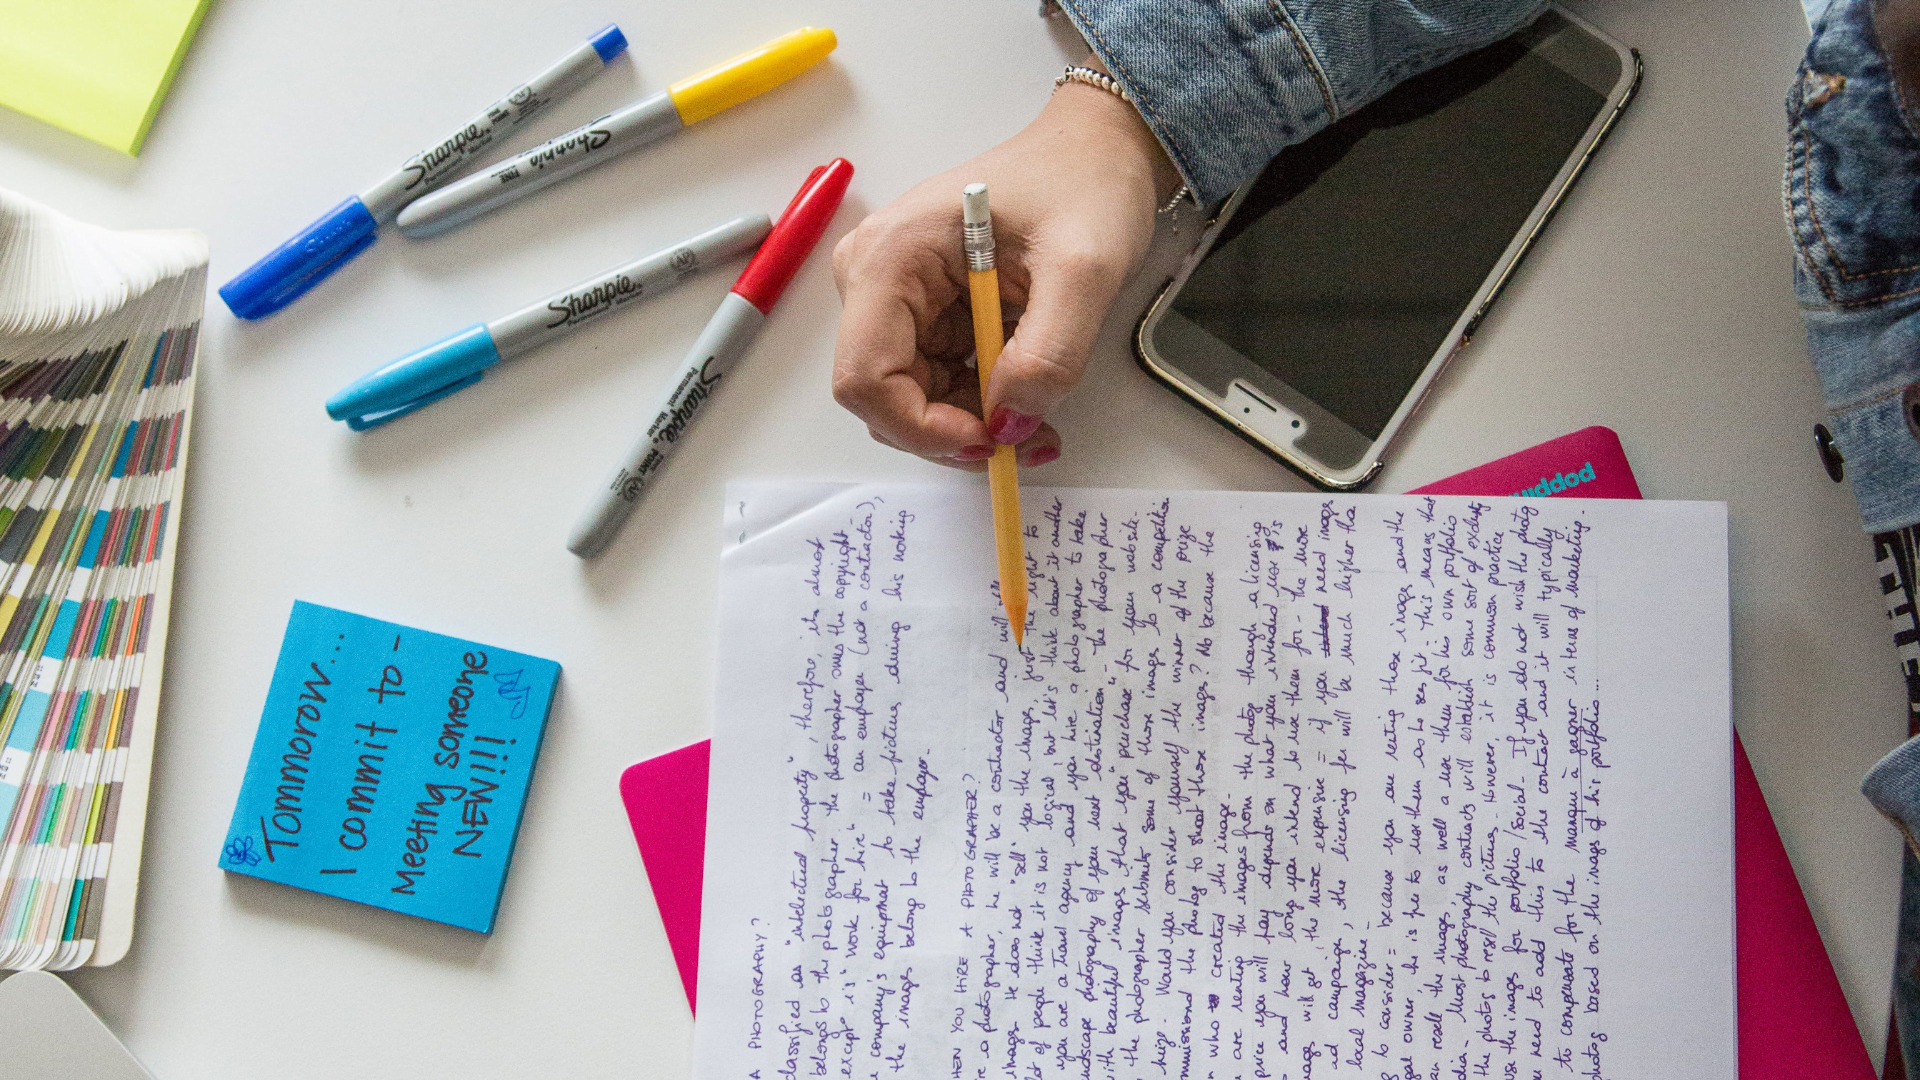 Sharpie
Permanent Marker
Sharpie
FINE
Sharpie
Permanent Marker
AP
Sharpie
Permanent Marker
FINE POINT
AP
poppin
Tommorow...
I commit to -
Meeting someone
NEW!!!
A PHOTOGRAPHY?
classified as "intellectual property", therefore, its almost
belongs to the photographer. The photographer owns the copyright -
except is "work for hire" = an employee (not a contractor),
company's equipment to take pictures during his working
the images belong to the employer.
HEN YOU HIRE A PHOTOGRAPHER?
re a photographer, he will be a contractor and will
images. He does not "sell" you the images, just the right to
lot of people think it is not logical, but let's think about it another
you are a travel agency and you hire a photographer to take
andscape photography of your next destination - the photographer
with beautiful images that you "purchase" for your website.
the photographer submits some of those images to a competition
huge. Would you consider yourself the winner of the prize
mmissioned the photog to shoot those images? No because the
who created the image.
are renting the images from the photog through a licensing
price you will pay depends on what you intended use is
and how long you intend to use them for - the more
mages will get, the more expensive = if you need image
ed campaign, the licensing fee will be much higher tha
local magazine -
to consider = because you are renting those images and the
gal owner, he is free to use them as he sees fit. This means that
an resell the images, as well a use them for his own portfolio
dia - Most photography contracts will establish some sort of
the photog to resell the pictures. However, it is common practice
use the images for portfolio/social - If you do not wish the photog
need to add this to the contract and it will typically
to compensate for the manque à gagner in terms of marketing.
photog based on the images of his portfolio...